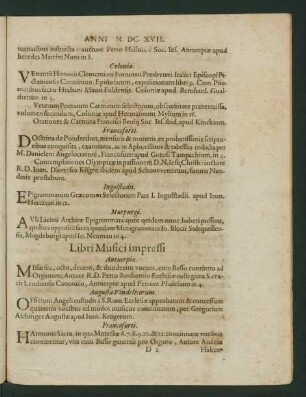 ANNI M. DC. XVII.
tormatibus instructa auctore Petro Halloix è Soc. Ies. Antuerpiæ apud
hæredes Martini Nutii in 8.
Coloniæ.
VEnantii Honorii Clementiani Fortunati Presbyteri Italici Episcopi Pi-
ctaviensis Carminum, Epistolarum, expositionum libri 9. Cum
omnibus sacris Hrabani Mauri Fuldensis. Coloniæ apud. Bernhard. Gual-
therium in 4.
Veterum Poetarum Carminum selectorum, obscœnitate prætermissa,
volumen secundum, Coloniæ apud Hermannum Mylium in 16.
Orationes & Carmina Francisci Benzij Soc. Ies. ibid. apud Kinckium.
Francofurti.
DOctrina de Ponderibus, mensuris & monetis, ex probatissimis scripto-
ribus conquisita, examinata, ac in Aphorismos & tabellas redacta per
M. Danielem Angelocratorē, Francofurti apud Gotofr. Tampachium, in 4.
Comprecationes Diurnæ in passionem D. N. Iesu Christi auctore
R. D. Ioan. Dieteriso ibidem apud Schonwetterum, futuris Nun-
dinis prostabunt.
Ingolstadii.
EPigrammatum Græcorum Selectorum Pars I. Ingolstadii. apud Ioan.
Hertsroi in 12.
Marpurgi.
Epigrammata quæ quidem nunc haberi possunt,
quibus opposita sacra quædam Io. Blocii
Magdeburgi apud Io. Neuman in 4.
Libri Musici impressi
Antuerpiæ.
MIssæ sex, octo, decem, & duodecim vocum, cum Basso continuo ad
Organum, Autore R. D. Petro Ecclesiæ collegiatæ Sacra-
Canonico, Antuerpiæ apud Petrum Phalesium in 4.
Augustæ Vindelicorum.
OFficium Angeli custodis à S. Rom. Ecclesia approbatum & concessum
quaternis vocibus ad modos musicos concinnatum, per Gregorium
Aichinger Augustæ apud Ioan.
Francofurti.
HArmonia Sacra, in qua Motectæ 6.7.8.9.10. & 12. concinnatæ vocibus
continentur, vnà cum Basso generali pro Organo, Autore Andrea
D 2 Haken-